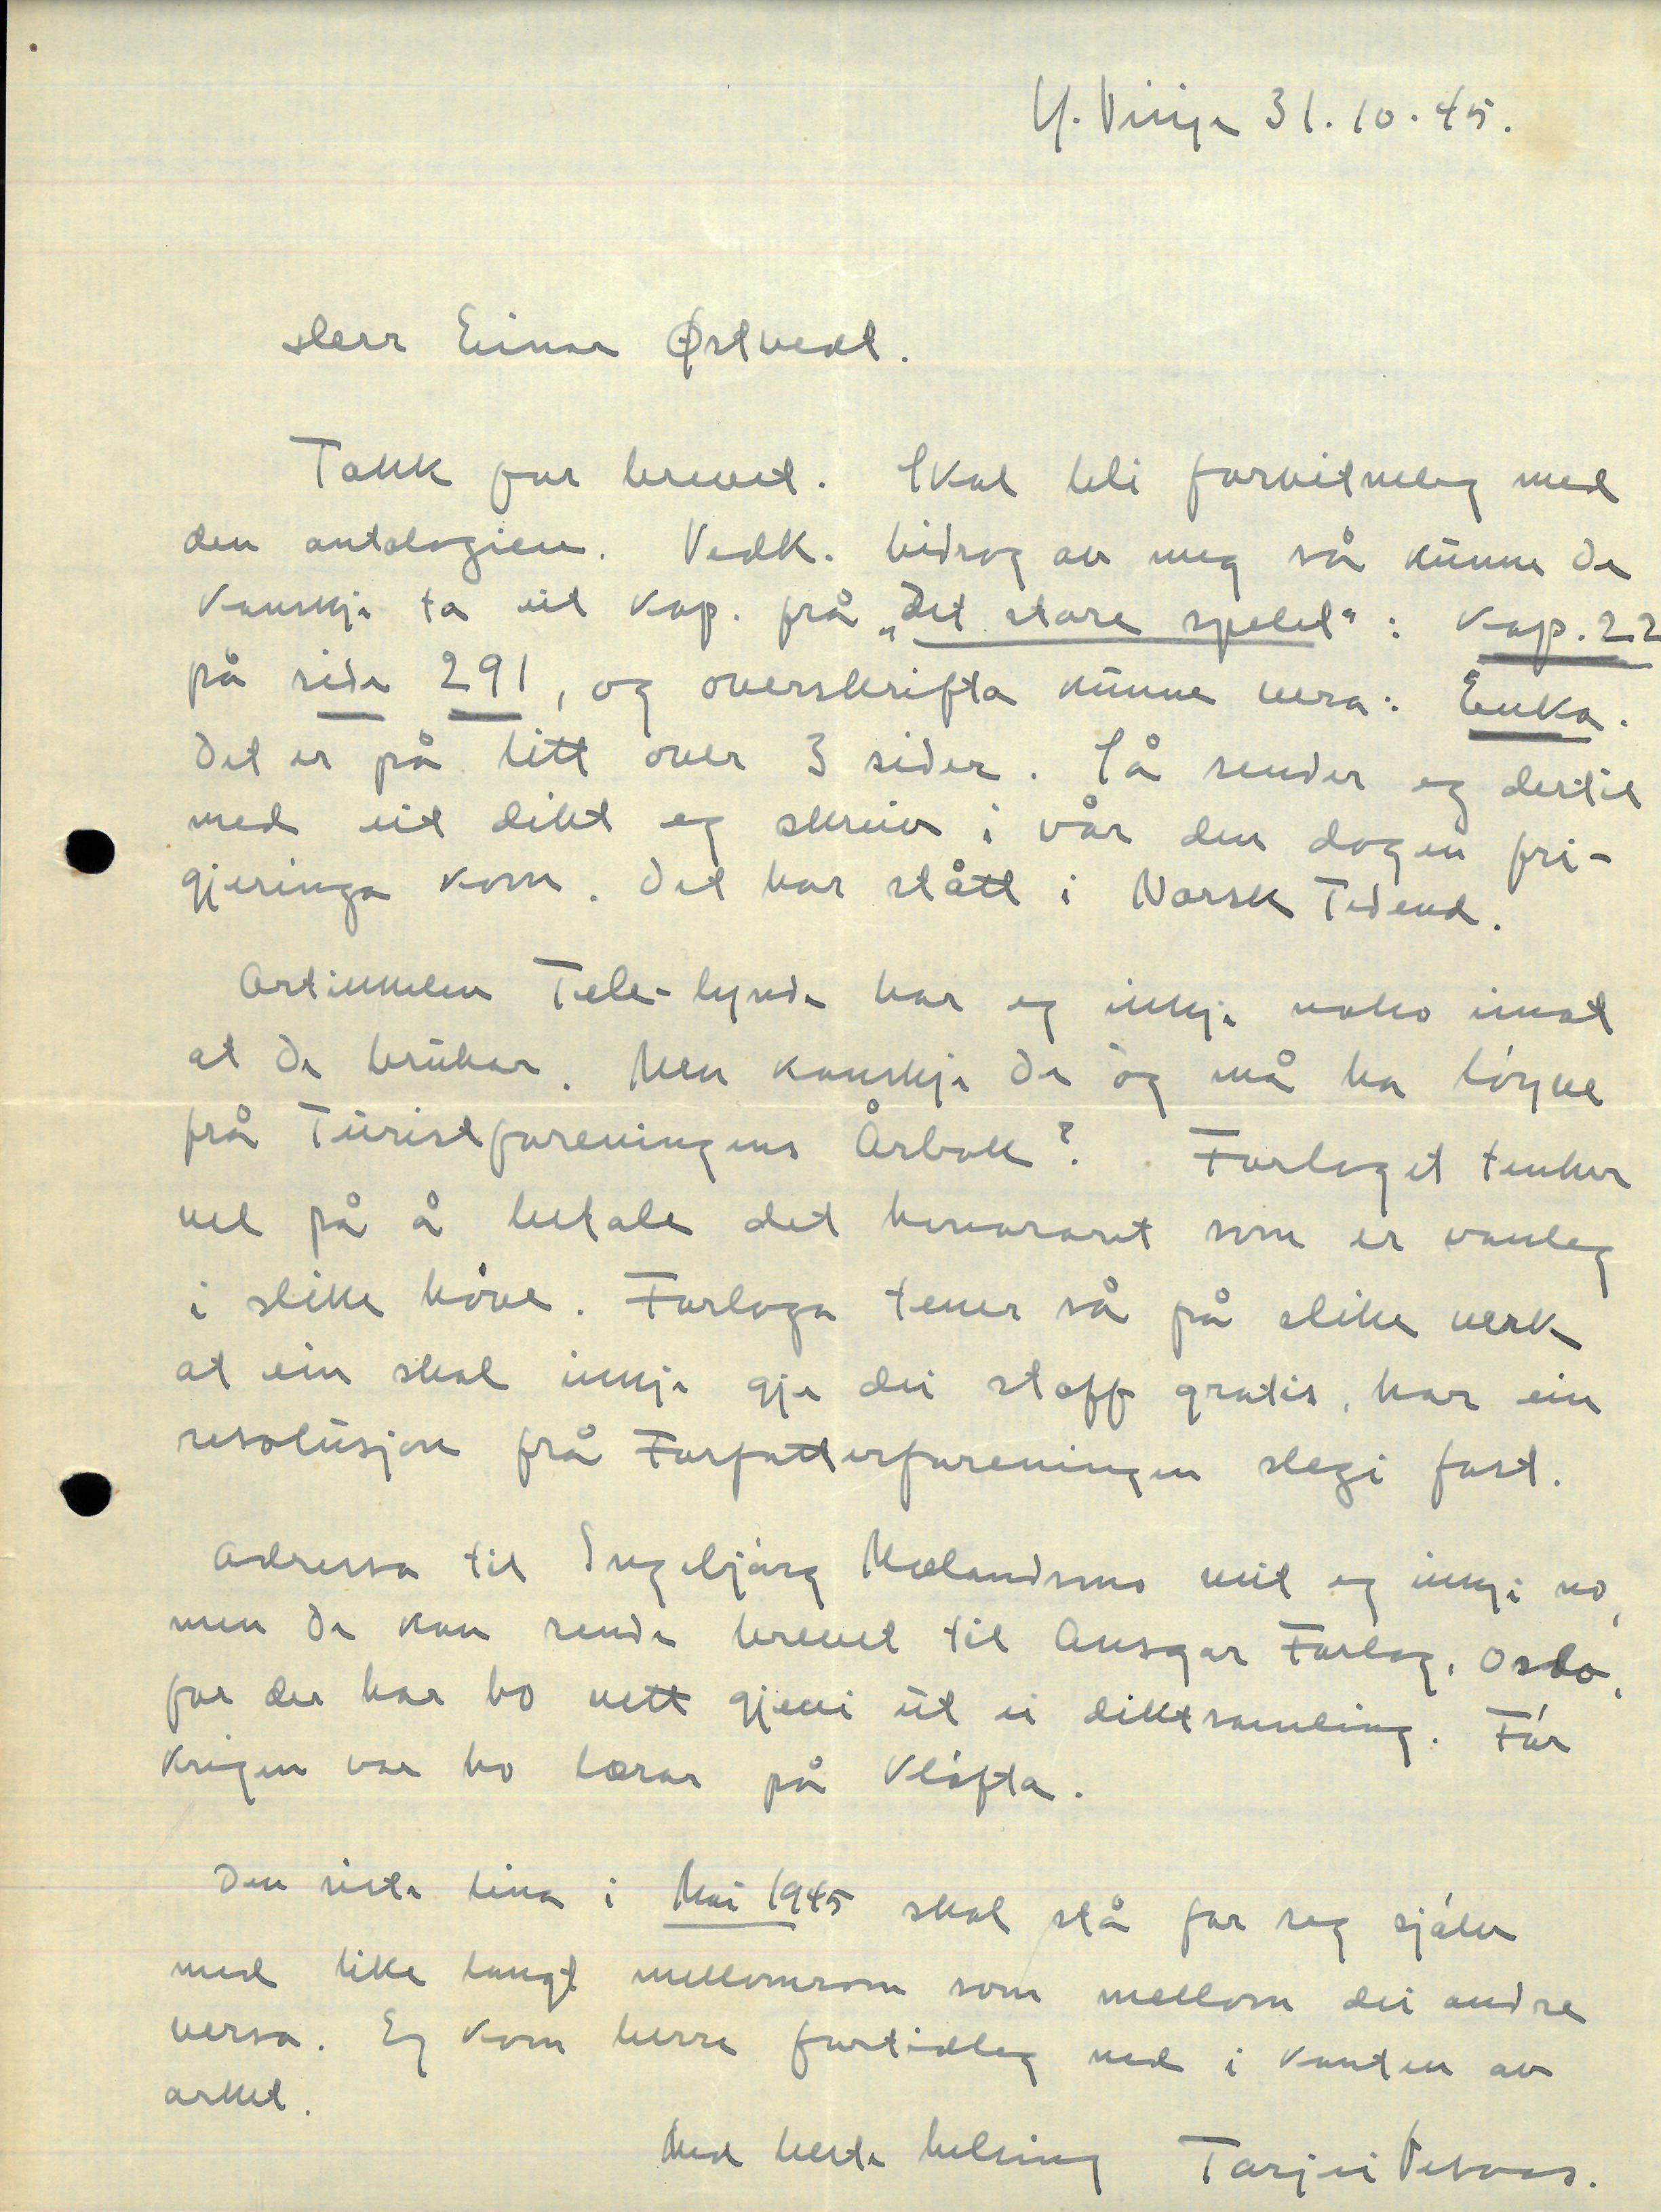 Y. Vinje 31.10.45.
Herr Einar Østvedt.
Takk for brevet. Skal bli forvitneleg med
den antologien. Vedk. bidrag av meg så kunne De
kanskje ta eit kap. frå "Det store spelet": Kap. 22
på side 291, og overskrifta kunne vera: Enka.
Det er på litt over 3 sider. Så sender eg dertil
med eit dikt eg skreiv i vår den dagen fri-
gjeringa kom. Det har stått i Norsk Tidend.
Artikkelen Tele-lynde har eg inkje noko imot
at De brukar. Men kanskje De òg må ha løyve
frå Turistforeningens Årbok? Forlaget tenker
vel på å betale det honoraret som er vanleg
i slike høve. Forlaga tener så på slike verk
at ein skal inkje gje dei stoff gratis, har ein
resolusjon frå Forfatterforeningen slegi fast.
Adressa til Ingebjørg Mælandsmo veit eg inkje no,
men De kan sende brevet til Ansgar Forlag, Oslo,
for der har ho nett gjevi ut ei diktsamling. Før
krigen var ho lærar på Kløfta.
Den siste lina i Mai 1945 skal stå for seg sjølv
med like langt mellomrom som mellom dei andre
versa. Eg kom berre fortidleg ned i kanten av
arket.
Med beste helsing Tarjei Vesaas.